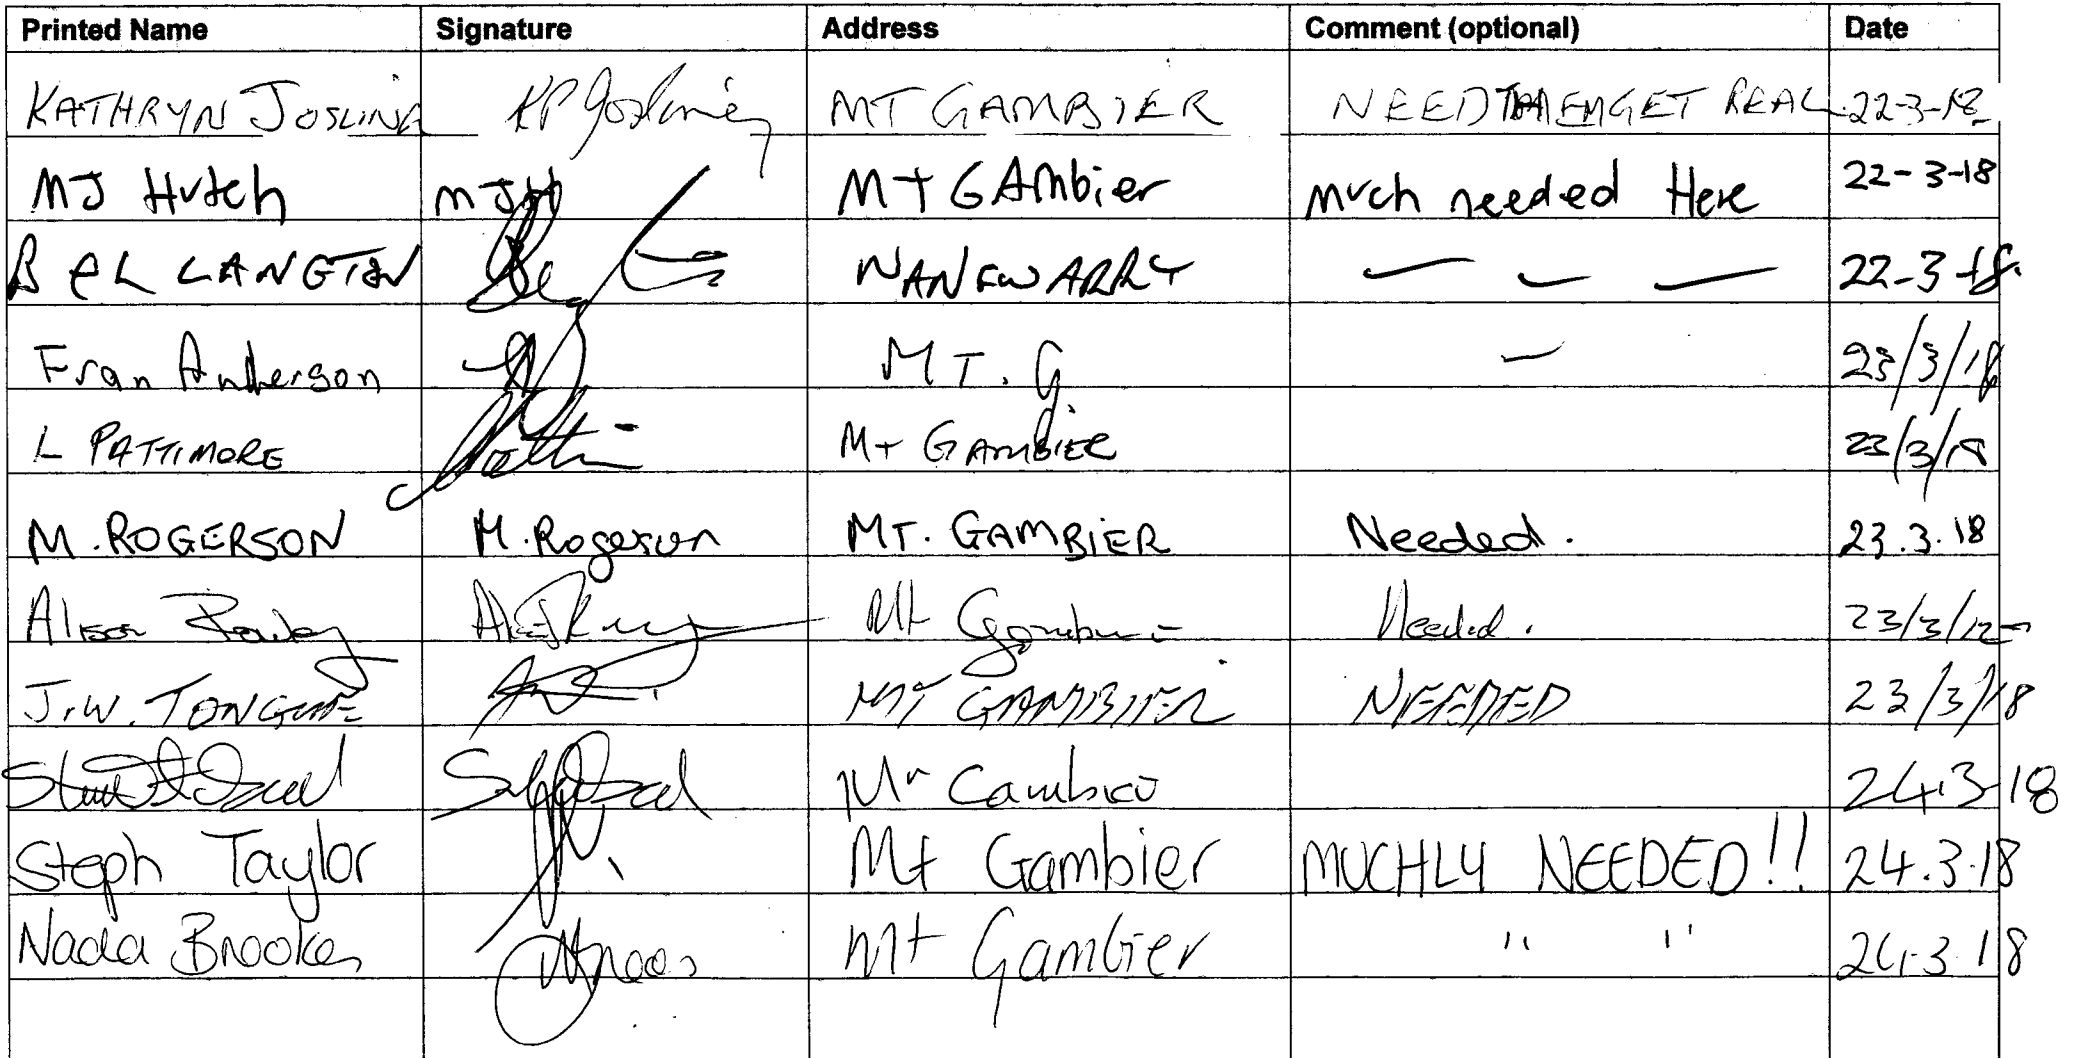 Printed Name Signature Address Comment (optional) Date
KATHRYN JOSLING KP Josling MT GAMBIER NEED THEM GET REAL 22-3-18
MJ Hutch MJH Mt GAMbier much needed Here 22-3-18
B & L LANGTON NANGWARRY — — — 22-3-18.
Fran Anderson MT. G — 23/3/18
L PATTIMORE Mt GAMBIER 23/3/18
M. ROGERSON M. Rogerson MT. GAMBIER Needed. 23.3.18
Alison Mt Gambier Needed. 23/3/18
J.W. TONGUE MT GAMBIER NEEDED 23/3/18
Mt Gambier 24.3-18
Steph Taylor Mt Gambier MUCHLY NEEDED!! 24.3.18
Nada Brookes Mt Gambier " " 24.3.18